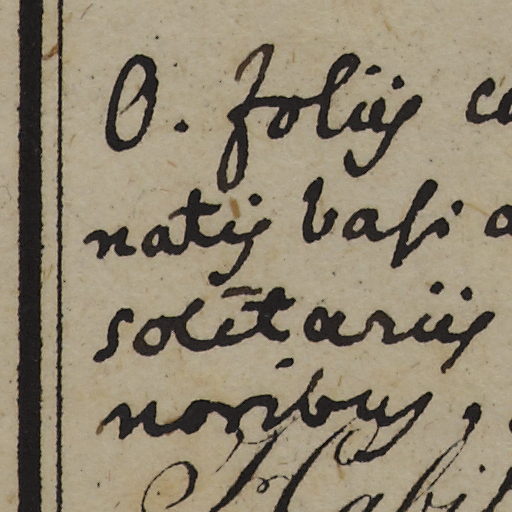 O. foliis co
natis basi a
solitariis
noribus,
Habit